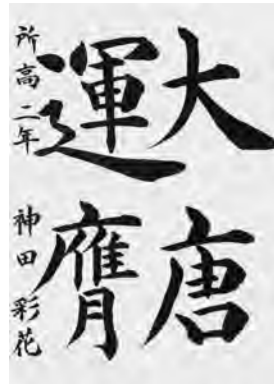 大唐
運膺
所高二年 神田彩花